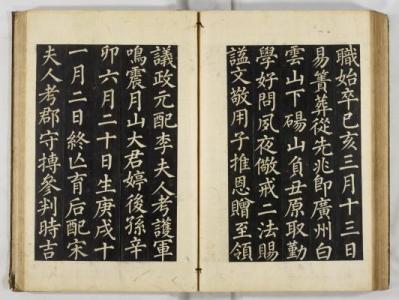 職始卒己亥三月十三日
易簀葬從先兆即廣州白
雲山下碭山負丑原取勤
學好問夙夜儆戒二法賜
謚文敬用子推恩贈至領
議政元配李夫人考護軍
鳴震月山大君婷後孫辛
卯六月二十日生庚戌十
一月二日終亾育后配宋
夫人考郡守搏參判時吉